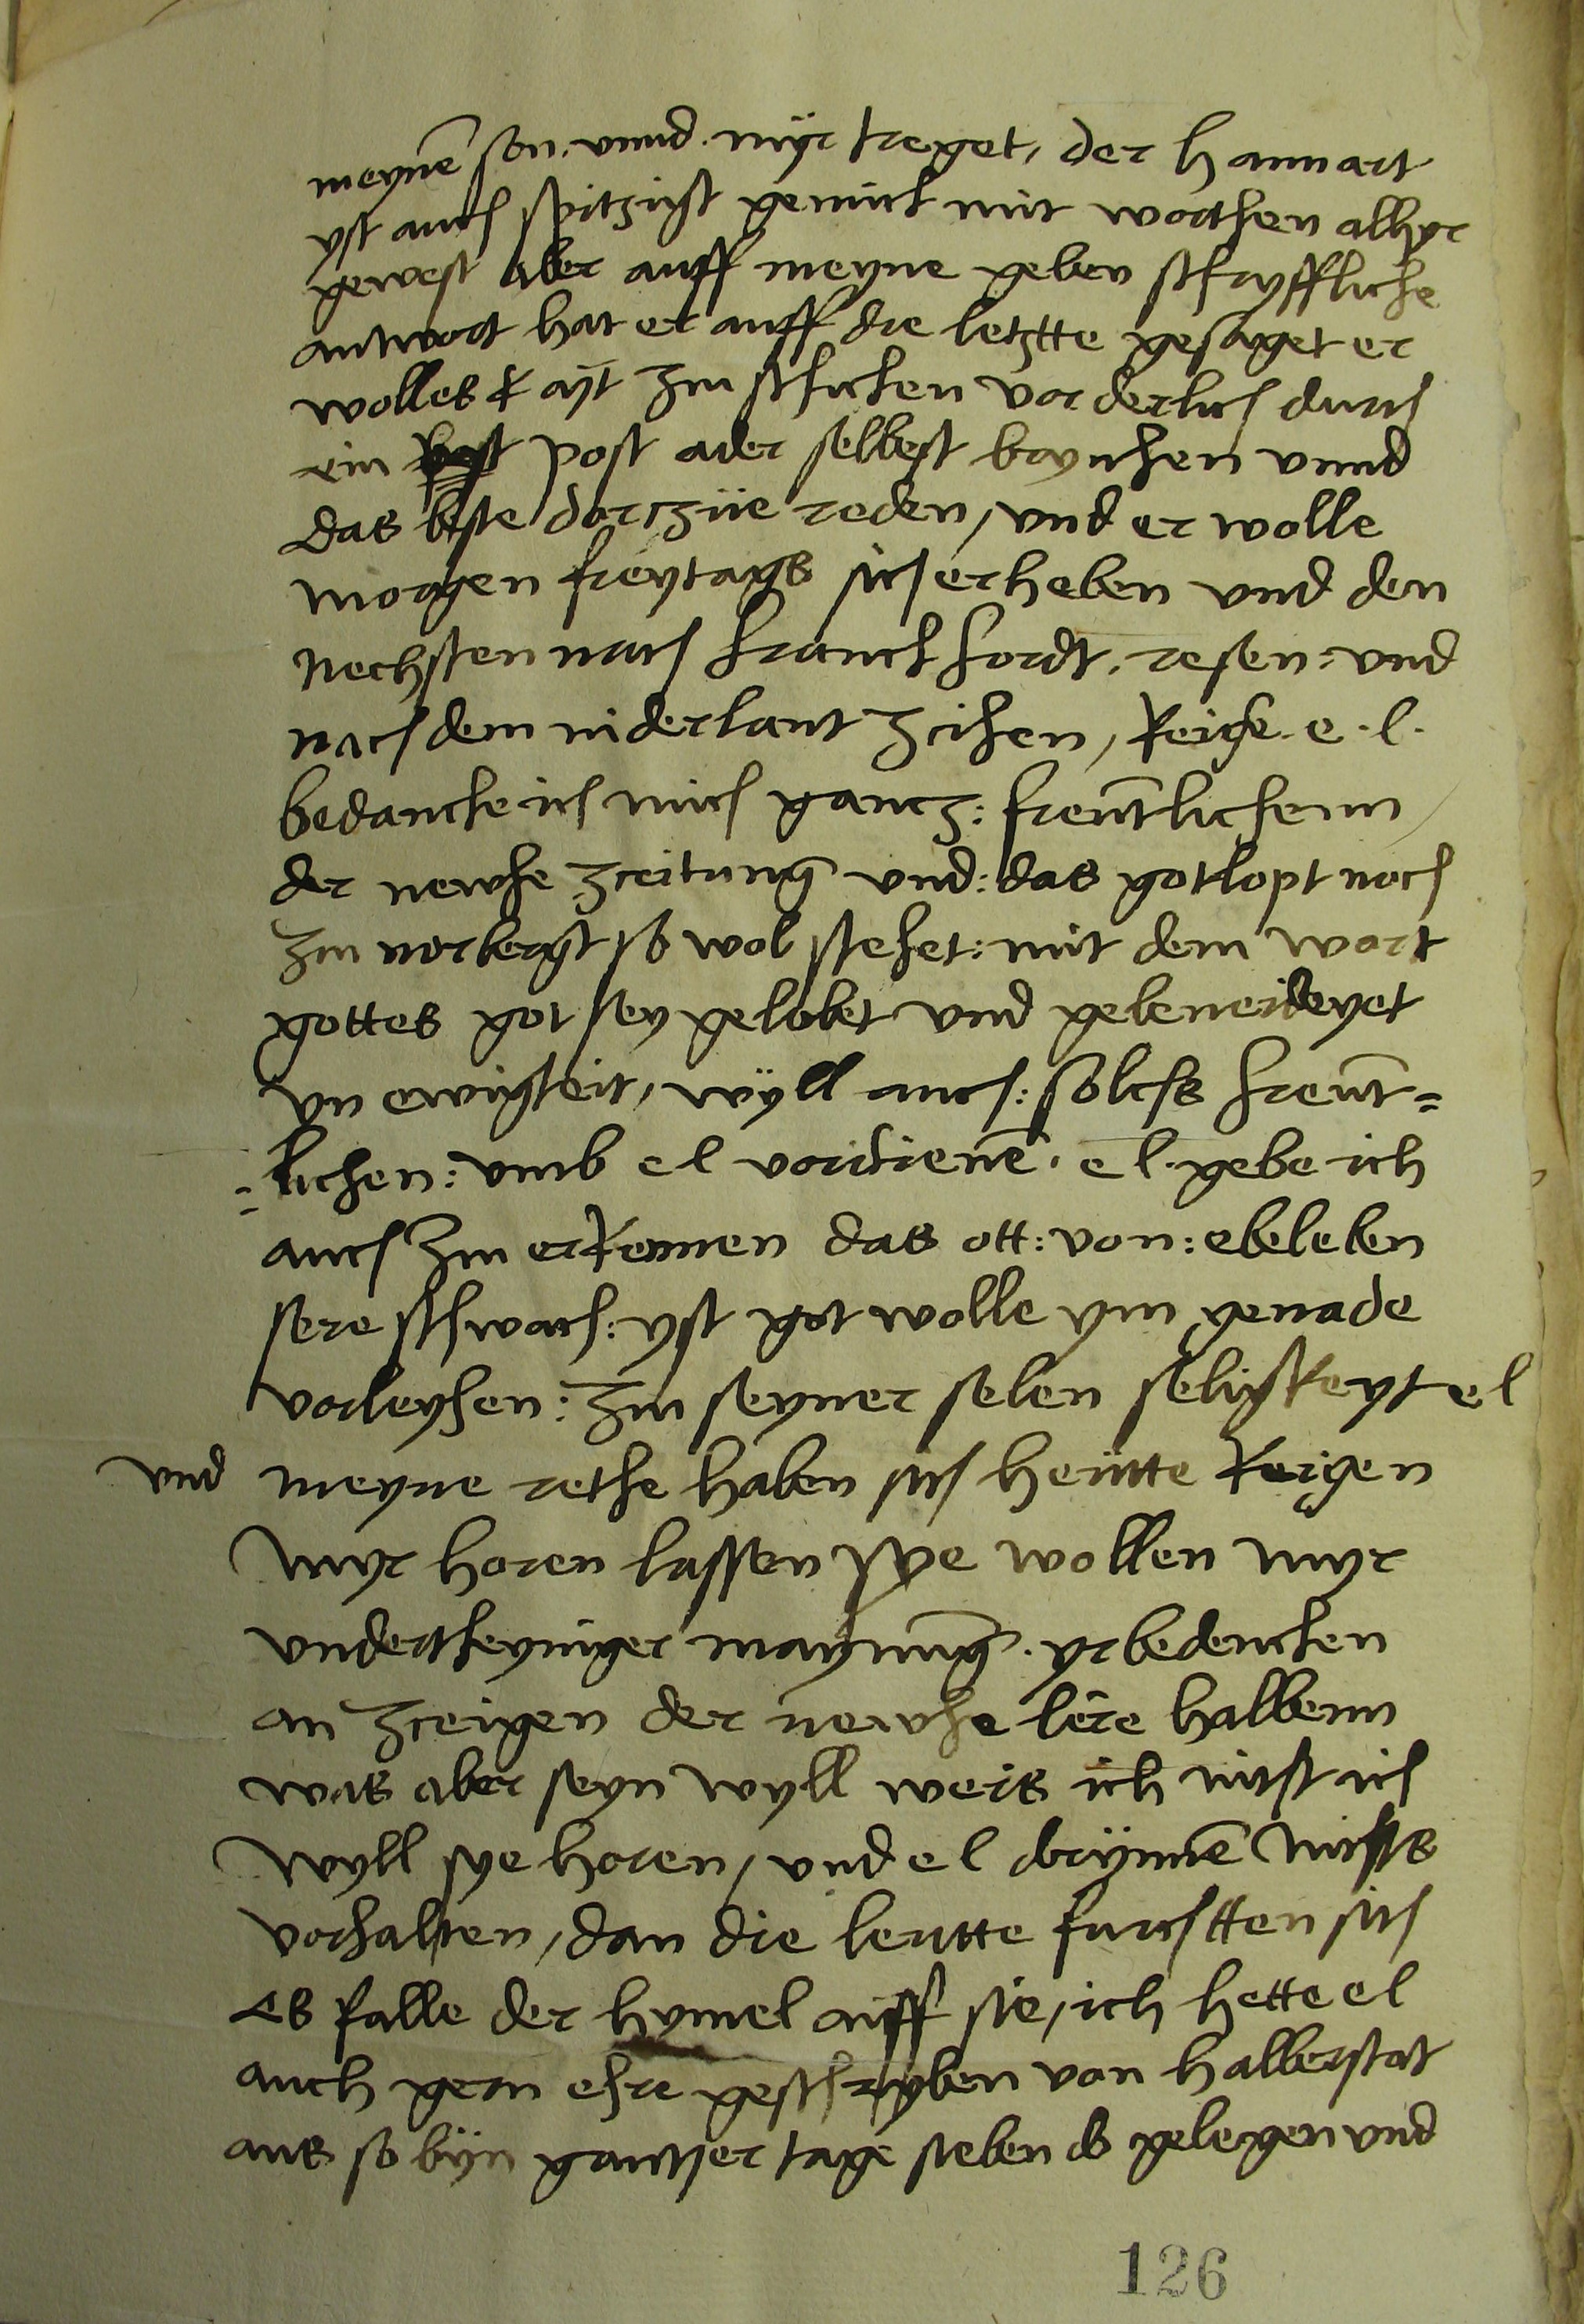 meynen son: unnd. myr treget, der hannart
yst auch spitzigk genuck mit worthen alhyr
gewest aber auff meyne geben schryffliche
antwort hat er auff die letztte gesaget er
wolles k mt zu schicken vorderlich durch
ein post ader selbest bryngen unnd
das beste dorczue reden, und er wolle
morgen freytags sich erheben und den
nechsten nach franckfordt. resen: und
nach dem niderlant zcihen, kein e. l.
bedancke ich mich gancz: freuntlichenn
der newhe zceitung und: das gotlopt noch
zu norbergk so wol stehet: mit dem wort
gottes got sey gelobet und gebeneideyet
yn ewigkeit, wyll auch: solchs freunt=
=lichen: umb e l vordienen. e l. gebe ich
auch zu erkennen das ott: von: ebeleben
sere schwach: yst got wolle ym genade
vorleyhen: zu seyner selen seligkeyt e l
und meyne rethe haben sich heutte kegen
myr horen lassen sye wollen myr
undertheyniger maynung. yr bedencken
an zceigen der newhe lere halbenn
was aber seyn wyll weis ich nicht ich
wyll sye horen, und e l dorynnen nichts
vorhalten, dan die leutte furchtten sich
es falle der hymel auff sie, ich hette e l
auch gern ehre geschryben von halberstat
aus so byn gantzer tage sieben do gelegen und
126